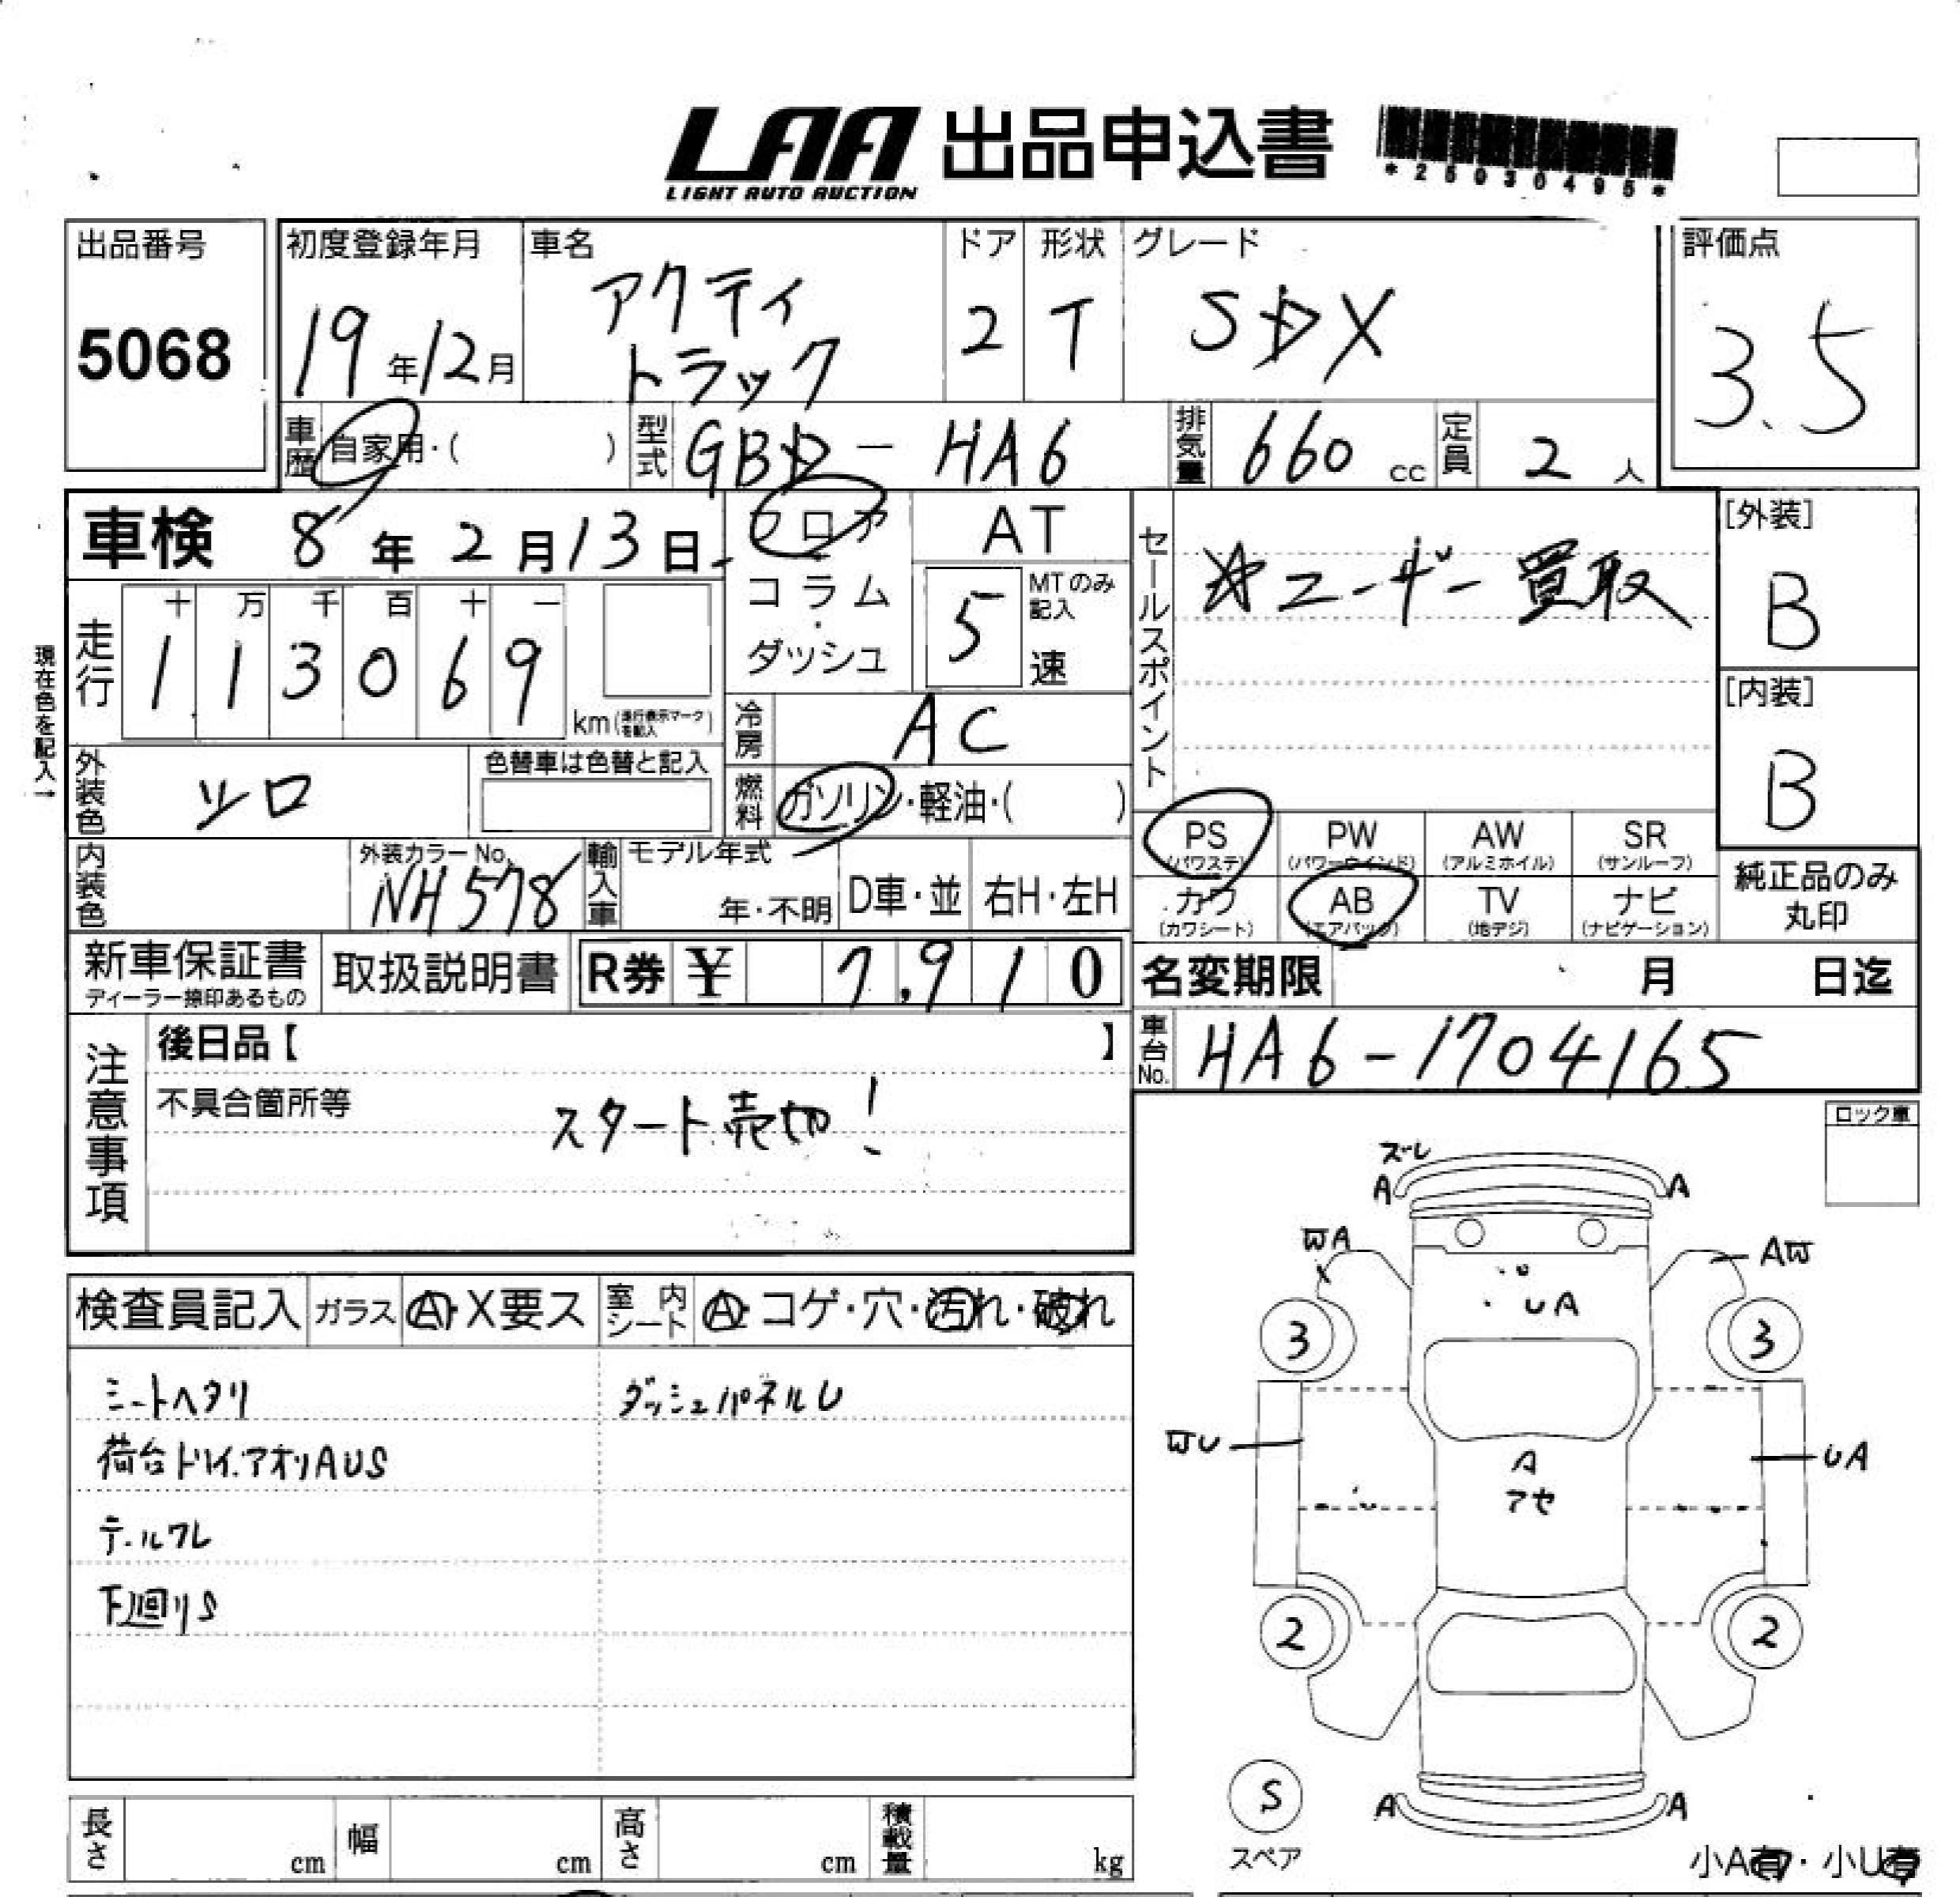 LAA 出品申込書
LIGHT AUTO AUCTION
*25030495*
出品番号
5068
初度登録年月
19年12月
車名
アクティ
トラック
ドア
2
形状
T
グレード
SDX
評価点
3.5
車歴
自家用・( )
型式
GBD-HA6
排気量
660 cc
定員
2人
車検 8年2月13日
フロア
コラム
・
ダッシュ
AT
5
MTのみ
記入
速
セールスポイント
☆ユーザー買取
[外装]
B
[内装]
B
現在色を記入→
走行
十 万 千 百 十 一
1 1 3 0 6 9
km(走行表示マークを記入)
冷房
AC
外装色
シロ
色替車は色替と記入
燃料
ガソリン・軽油・( )
PS
(パワステ)
PW
(パワーウインド)
AW
(アルミホイル)
SR
(サンルーフ)
カワ
(カワシート)
AB
(エアバッグ)
TV
(地デジ)
ナビ
(ナビゲーション)
純正品のみ
丸印
内装色
外装カラーNo.
NH578
輸入車
モデル年式
年・不明
D車・並
右H・左H
新車保証書
ディーラー捺印あるもの
取扱説明書
R券 ¥ 7,910
名変期限 月 日迄
車台No.
HA6-1704165
注意事項
後日品【 】
不具合箇所等
スタート売切!
ロック車
検査員記入
ガラス
A・X要ス
室内
シート
A・コゲ・穴・汚れ・破れ
シートヘタリ
ダッシュパネルU
荷台ドリイ.アオリAUS
テールワレ
下廻りS
ズレ
A
A
WA
AW
UA
3
3
WU
UA
A
アセ
2
2
S
スペア
A
A
小A有・小U有
長さ
cm
幅
cm
高さ
cm
積載量
kg